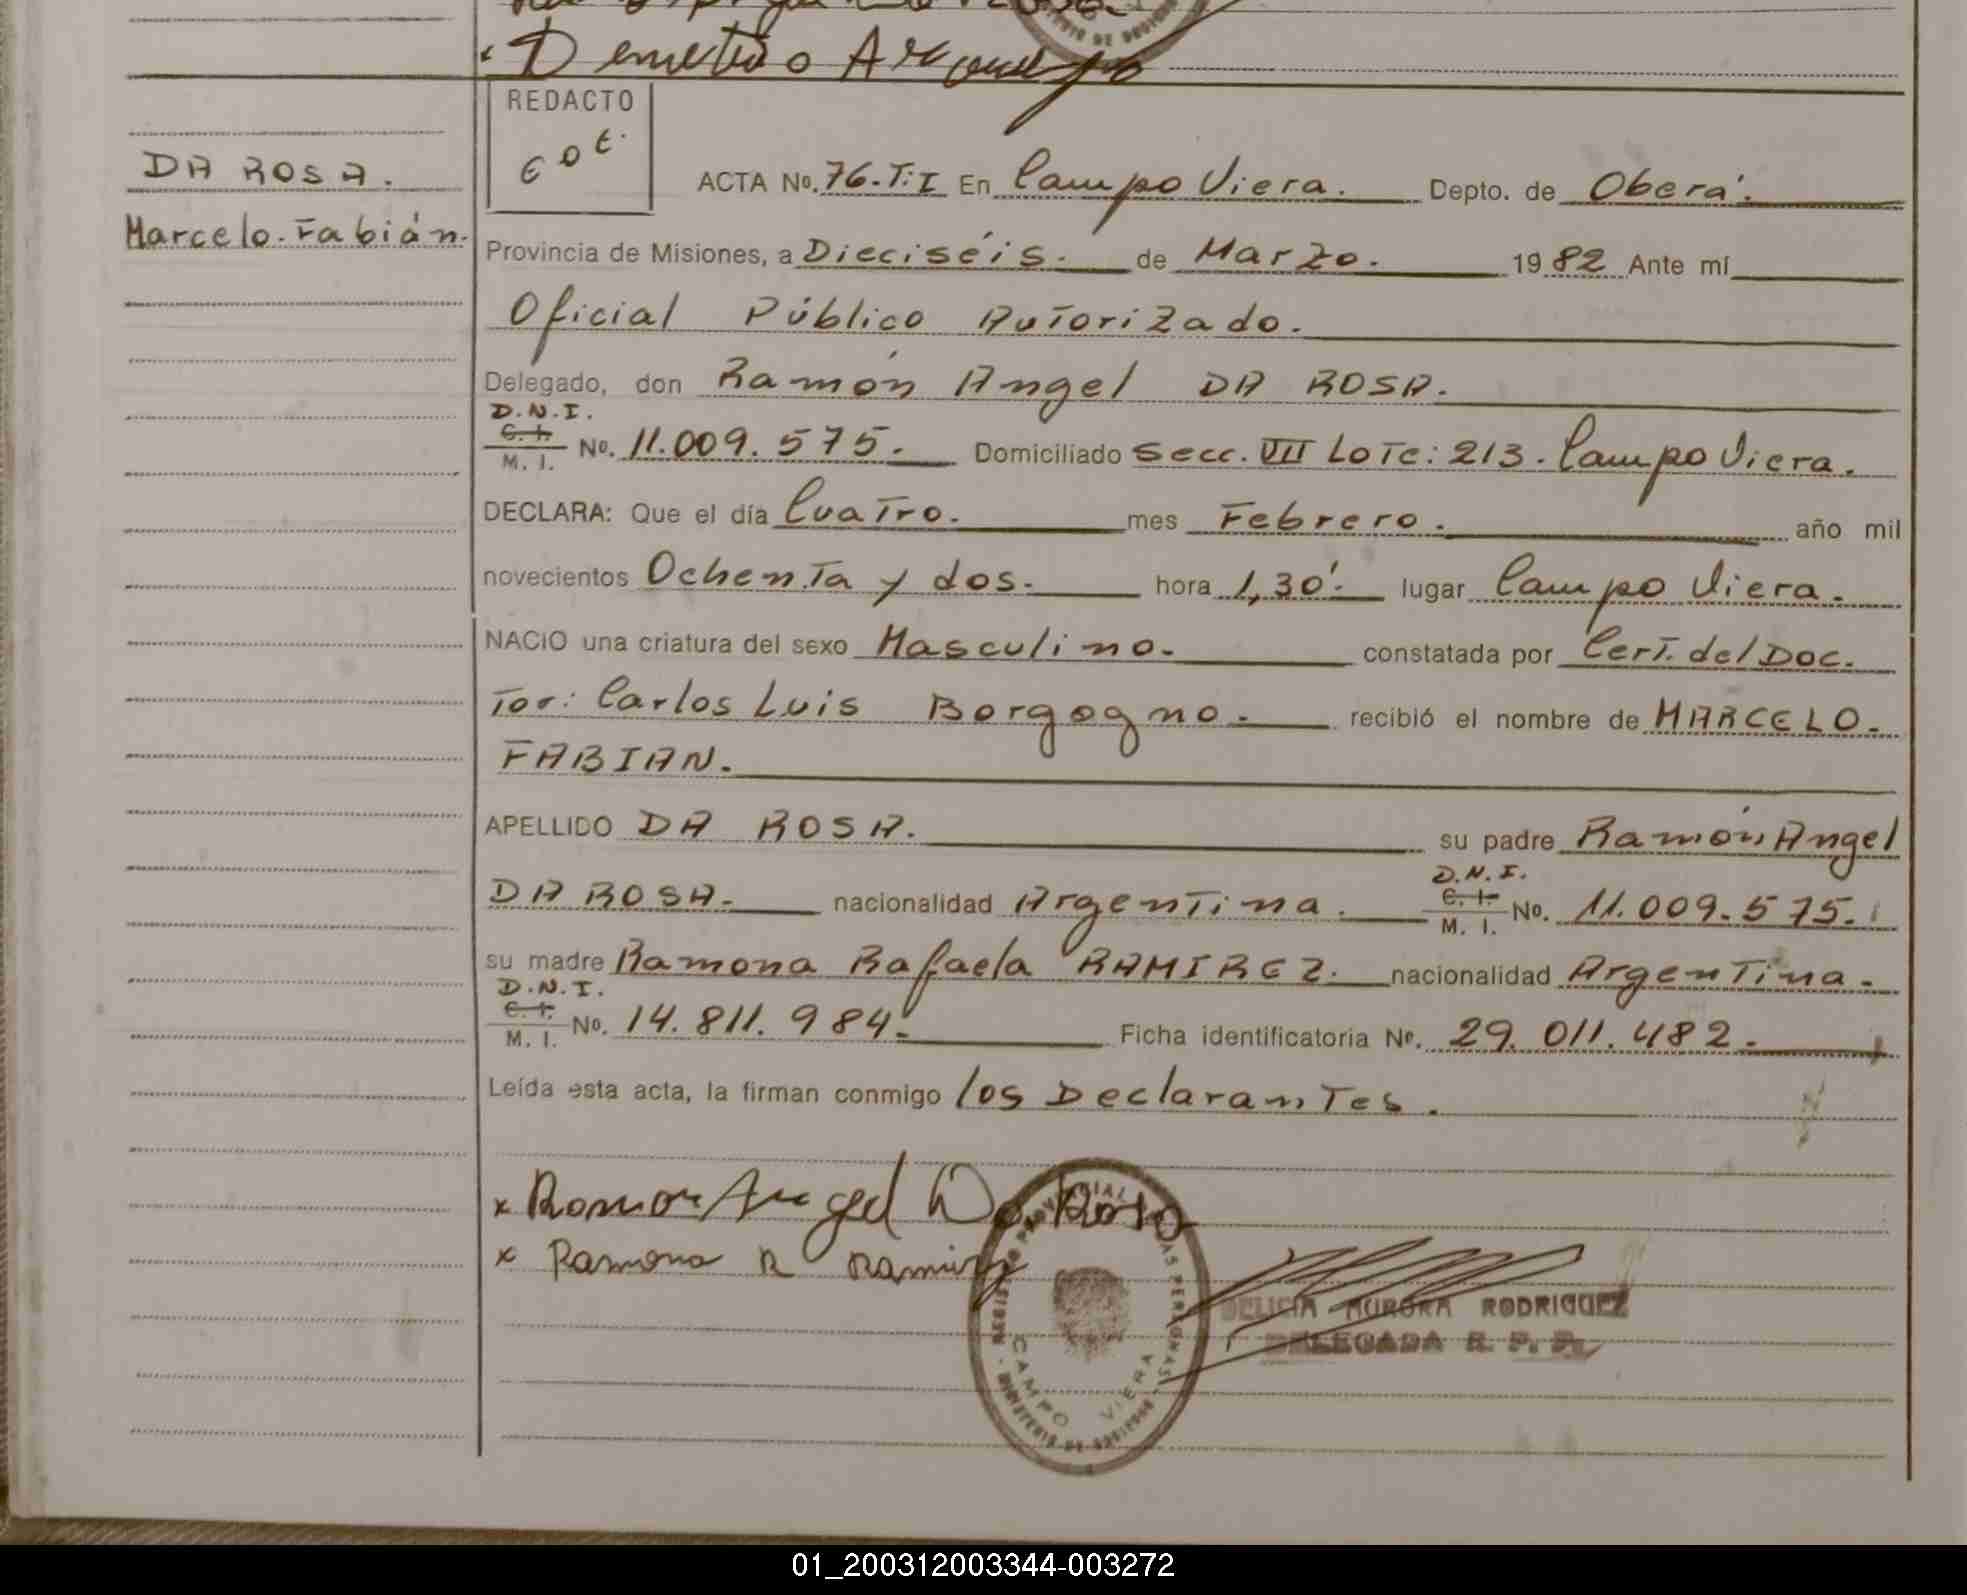 Demetrio
REDACTO
DA ROSA.
Marcelo. Fabián.
ACTA No. 76-T:I En Campo Viera. Depto. de Oberá.
Provincia de Misiones, a Dieciséis. de Marzo. 1982 Ante mí
Oficial Público Autorizado.
Delegado, don Ramón Angel DA ROSA.
D.N.I.
C. I.
M. I. No. 11.009.575. Domiciliado Secc. VII Lote: 213. Campo Viera.
DECLARA: Que el día Cuatro. mes Febrero. año mil
novecientos Ochenta y dos. hora 1,30'. lugar Campo Viera.
NACIO una criatura del sexo Masculino. constatada por Cert. del Doc.
Tor: Carlos Luis Borgogno. recibió el nombre de MARCELO.
FABIAN.
APELLIDO DA ROSA. su padre Ramón Angel
D.N.I.
DA ROSA. nacionalidad Argentina. C. I. M. I. No. 11.009.575.
su madre Ramona Rafaela RAMIREZ. nacionalidad Argentina.
D.N.I.
C. I.
M. I. No. 14.811.984. Ficha identificatoria No. 29.011.482.
Leída esta acta, la firman conmigo los Declarantes.
x Ramon Angel Da Rosa
x Ramona R Ramirez
CAMPO VIERA
DELICIA AURORA RODRIGUEZ
DELEGADA R. P. P.
01_200312003344-003272